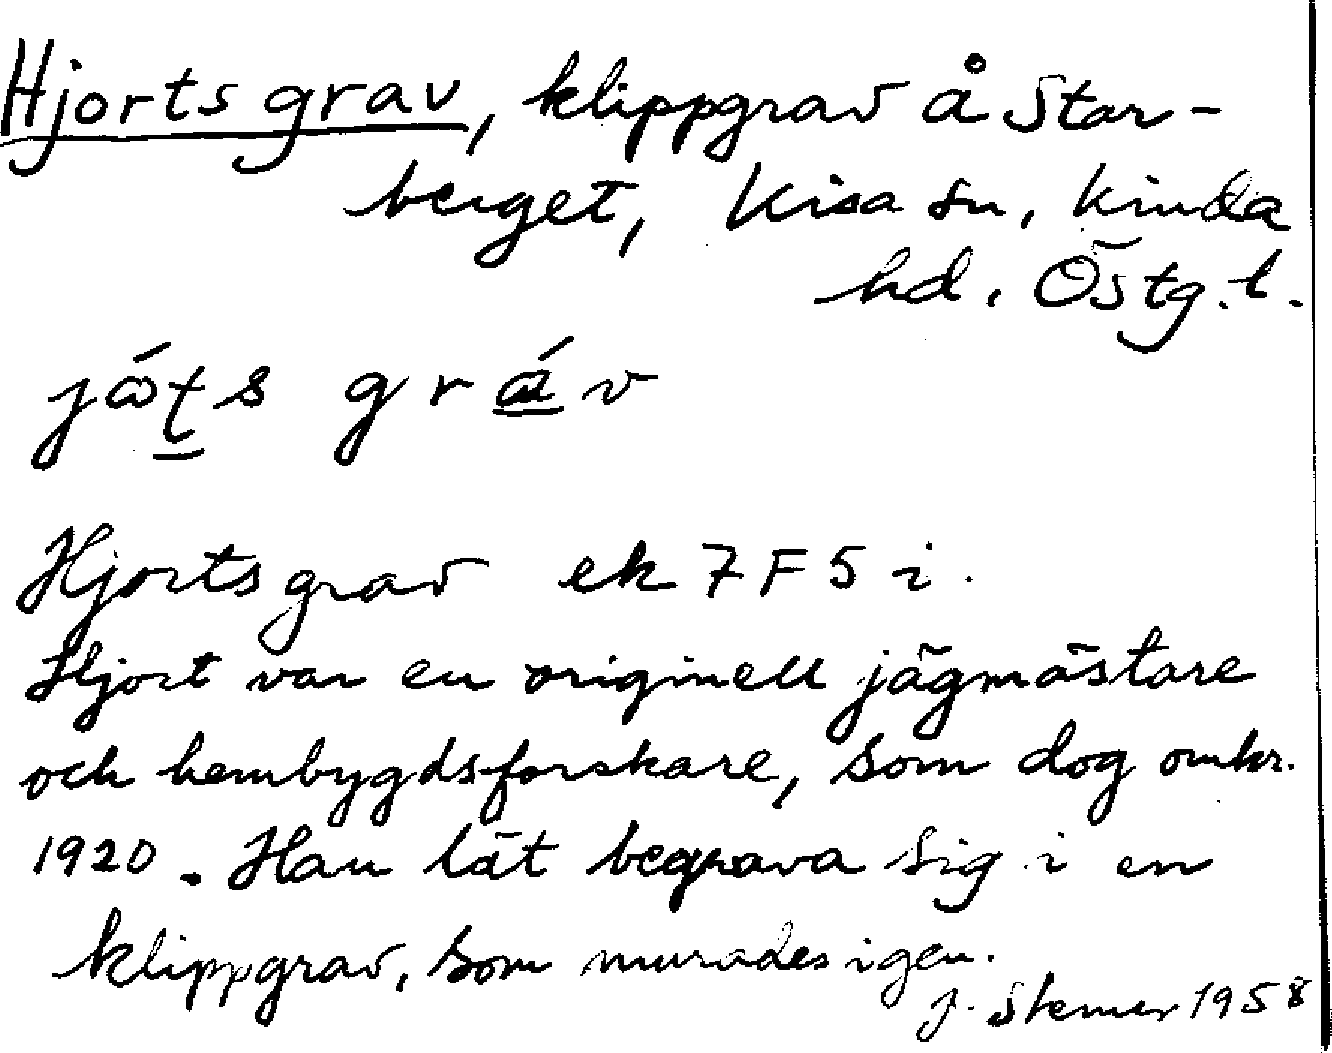 Hjortsgrav, klippgrav å Stor-
berget, Kisa sn, Kinda
hd, Östg. l.
Hjortsgrav ek 7F5i.
Hjort var en originell jägmästare
och hembygdsforskare, som dog omkr.
1920. Han lät begrava sig i en
klippgrav, som murades igen.
J. 1958